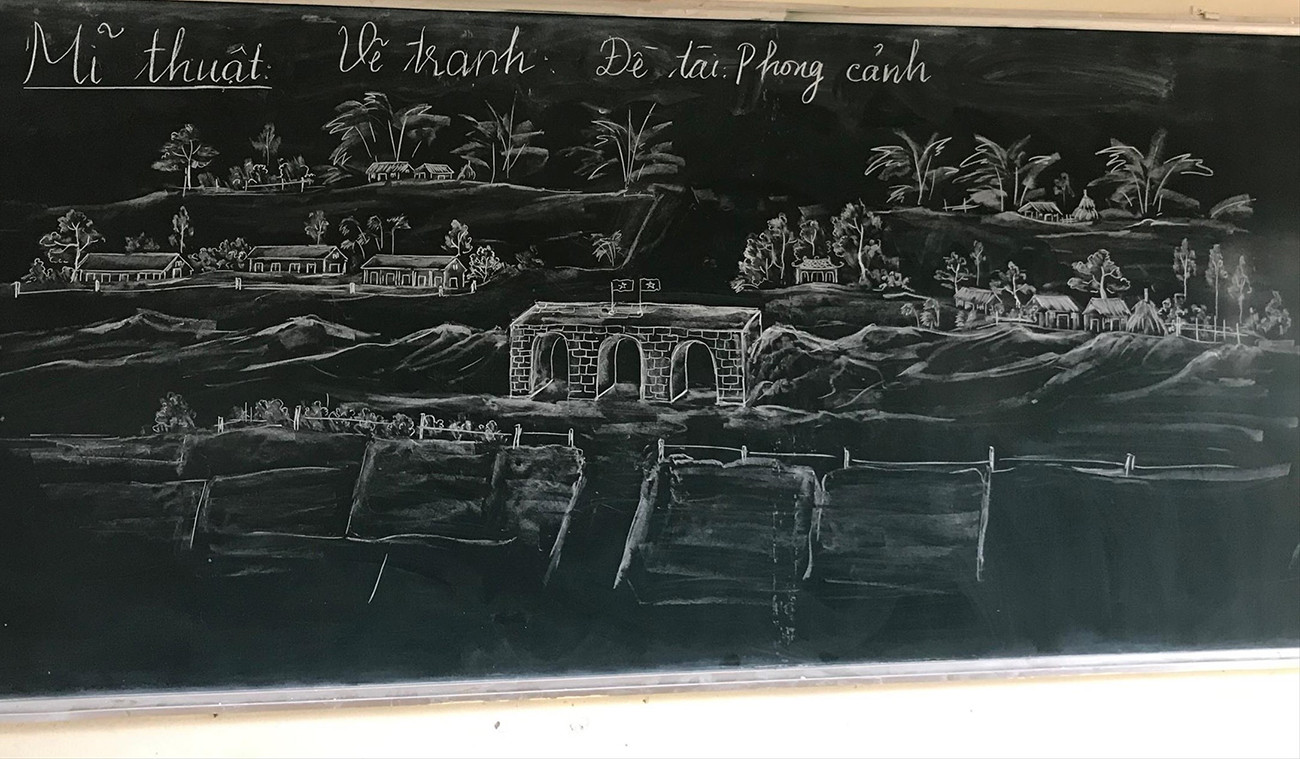 Mĩ thuật: Vẽ tranh: Đề tài: Phong cảnh